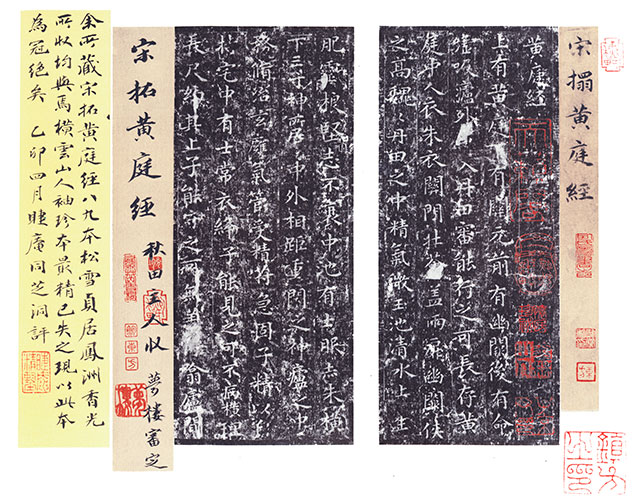 宋搨黃庭經
黃庭經
上有黃庭下有關元前有幽闕後有命
噓吸廬外出入丹田審能行之可長存黃
庭中人衣朱衣關門壯籥蓋兩扉幽闕俠
之高魏魏丹田之中精氣微玉池清水上生
肥靈根堅志不衰中池有士服赤朱橫
下三寸神所居中外相距重閉之神廬之中
務脩治玄膺氣管受精符急固子精以自
持宅中有士常衣絳子能見之可不病橫理
長尺約其上子能守之可無恙呼噏廬間
宋拓黃庭經 秋田主人收 夢樓審定
余所藏宋拓黃庭經八九本松雪貞居鳳洲香光
所收均與焉橫雲山人袖珍本最精已失之現以此本
為冠絕矣 乙卯四月睫庵同芝洞評